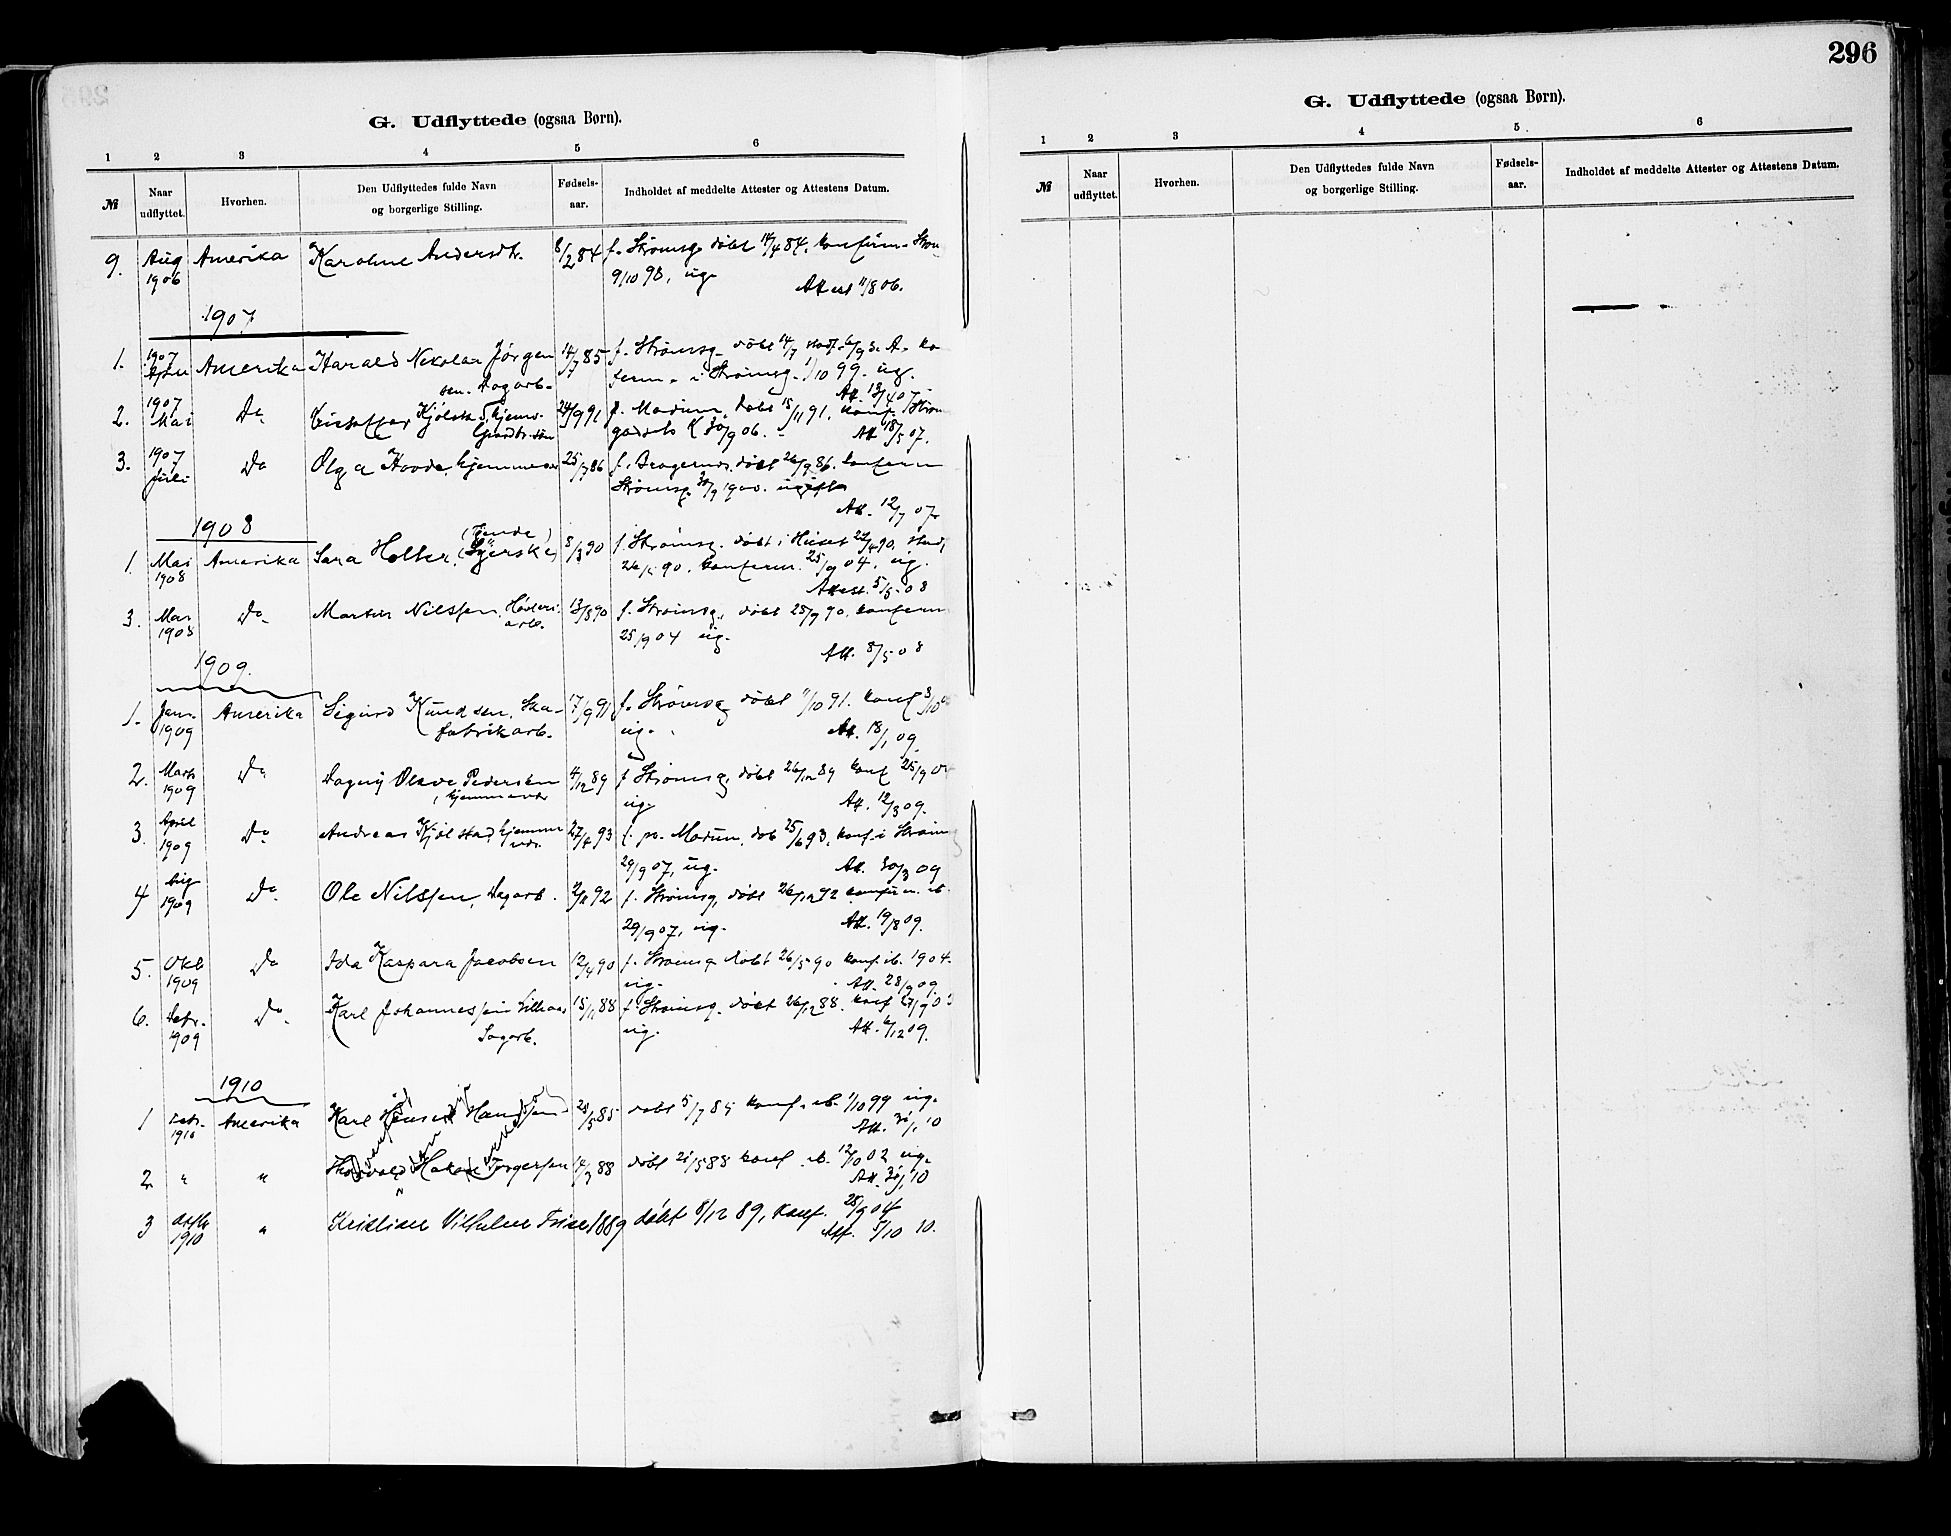 296
G. Udflyttede (ogsaa Børn).
1 2 3 4 5 6
№ Naar udflyttet. Hvorhen. Den Udflyttedes fulde Navn og borgerlige Stilling. Fødsels-aar. Indholdet af meddelte Attester og Attestens Datum.
9. Aug Amerika Karoline Andersdtr. 8/2 84 f. Strømsg. døbt 14/4 84. konfirm.
1906 9/10 98, ug.
Attest 11/8 06.
1907
1. 1907 Amerika Harald Nikolai Jørgen 14/7 85 f. Strømsg. døbt
sen. Dagarb. i Strømsg. 1/10 99. ug.
2. 1907 Do 24/9 91 f. Modum, døbt 15/11 91. konf.
Mai 30/9 06. Att. 18/5 07.
3. 1907 Do Olga hjemmevær 25/7 86 f. Bragernes. døbt 26/9 86. konfirm
Juli Strømsg. 30/9 1900. ug
Att. 12/7 07.
1908
(Tjende)
1. Mai Amerika Sara Holter. 8/3 90 f. Strømsg. døbt i Huset
1908 90. konfirm. 25/9 04. ug.
Attest. 5/5 08
3. Mai Do Martin Nilssen. Høvleri 13/5 90 f. Strømsg. døbt 90. konfirm
1908 arb. 25/9 04 ug.
Att. 8/5 08
1909.
1. Jan. Amerika Sigurd Knudsen. Sko- 17/9 91 f. Strømsg. døbt 11/10 91. konf
1909 fabrikarb. ug. Att. 18/1 09.
2. Marts Do Dagny Olava Pedersen 4/12 89 f. Strømsg. døbt 26/12 89 konf 25/9
1909 hjemmevær ug. Att. 12/3 09.
3. April Do Andreas Kjølstad hjemme 27/4 93 f. Modum. døb 25/6 93. konf. i Strøm
1909 29/9 07, ug. Att. 30/3 09
4 Aug Do Ole Nilssen, Dagarb. 92 f. Strømsg. døbt 26/12 92 konfirm. ib.
1909 29/9 07, ug. Att. 19/8 09.
5. Okt Do Ida Kaspara Jacobsen 12/4 90 f. Strømsg. døbt 26/5 90 konf. ib. 1904.
1909 ug. Att. 28/9 09.
6. Do Karl Johannessen 15/11 88 f. Strømsg. døbt 26/12 88. konf 27/9 03
1909 Sagarb. ug. Att. 6/12 09.
1910
1 Febr. Amerika Karl 28/5 85 døbt 5/7 85 konf. ib. 1/10 99 ug.
1910 Att. 31/1 10
2 " " Torgersen 14/3 88 døbt 21/5 88 konf. ib. 12/10 02 ug.
Att. 31/1 10
3 " Kristian Vilhelm 1889 døbt 8/12 89, konf. 25/9 04
1910 Att. 5/10 10.
G. Udflyttede (ogsaa Børn).
1 2 3 4 5. 6
№ Naar udflyttet. Hvorhen. Den Udflyttedes fulde Navn og borgerlige Stilling. Fødsels-aar. Indholdet af meddelte Attester og Attestens Datum.